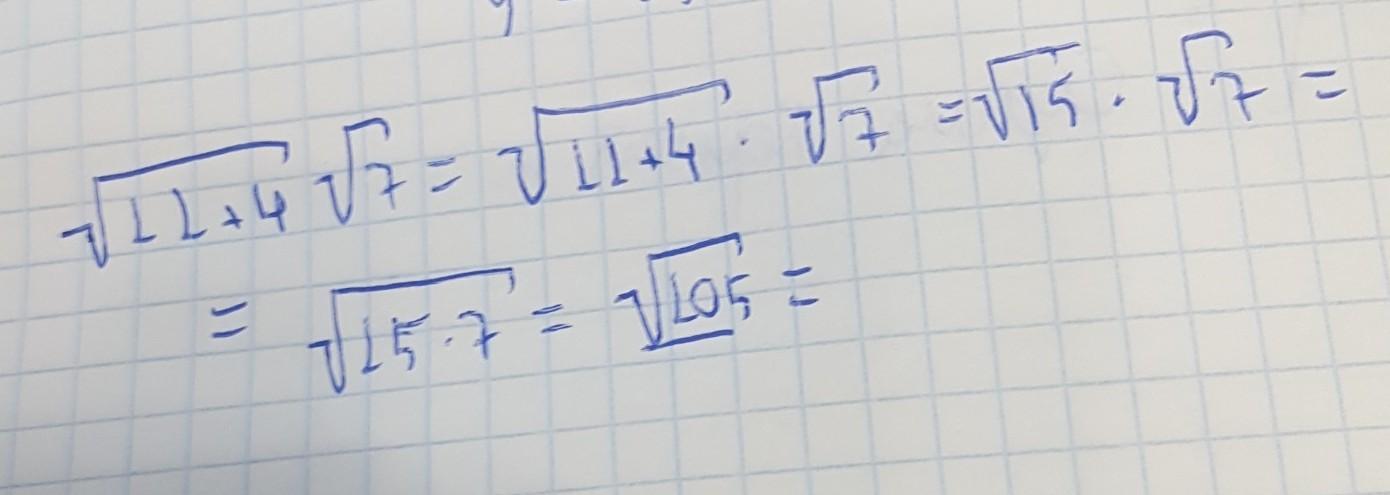 √11+4 √7 = √11+4 · √7 = √15 · √7 =
= √15·7 = √105 =